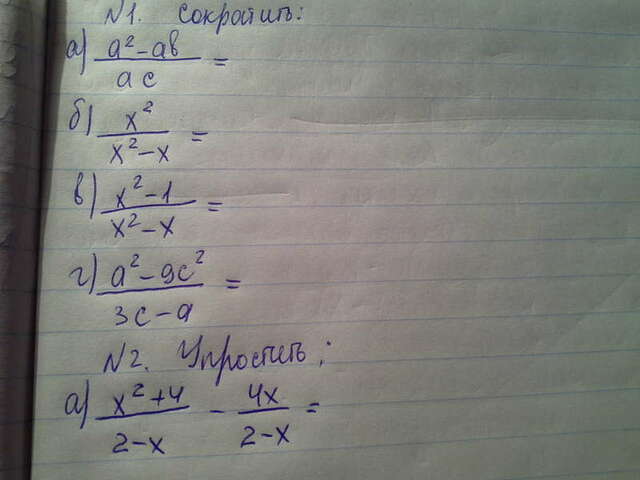 N1. Сократить:
а) (a²-ab)/(ac) =
б) x²/(x²-x) =
в) (x²-1)/(x²-x) =
г) (a²-9c²)/(3c-a) =
N2. Упростить:
а) (x²+4)/(2-x) - 4x/(2-x) =